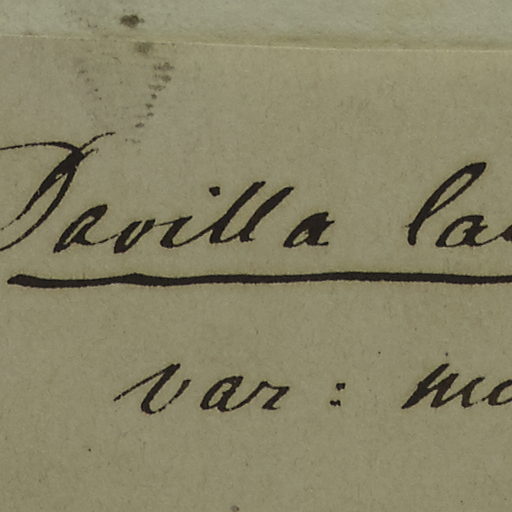 Davilla la
var: mo